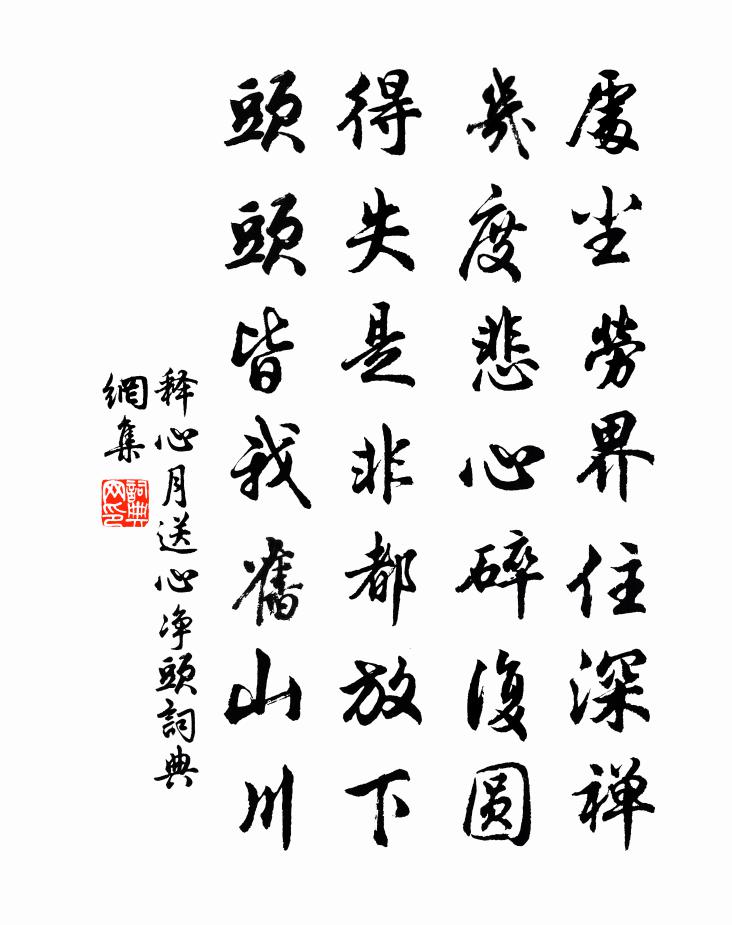 處尘勞界住深禅
幾度悲心碎復圆
得失是非都放下
頭頭皆我舊山川
释心月送心净頭詞典
網集
詞典
网印